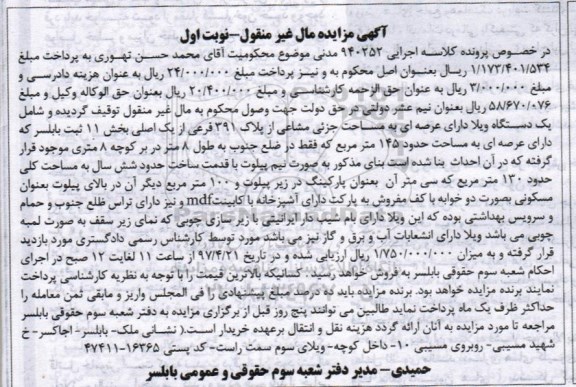 آگهی مزایده مال غیر منقول-نوبت اول
در خصوص پرونده کلاسه اجرایی ۹۴۰۲۵۲ مدنی موضوع محکومیت آقای محمد حسن تهوری به پرداخت مبلغ
۱/۱۷۳/۴۰۱/۵۳۴ ریال بعنوان اصل محکوم به و نیز پرداخت مبلغ ۲۴/۰۰۰/۰۰۰ ریال به عنوان هزینه دادرسی و
مبلغ ۳/۰۰۰/۰۰۰ ریال به عنوان حق الزحمه کارشناسی و مبلغ ۲۰/۴۰۰/۰۰۰ ریال بعنوان حق الوکاله وکیل و مبلغ
۵۸/۶۷۰/۰۷۶ ریال بعنوان نیم عشر دولتی در حق دولت جهت وصول محکوم به مال غیر منقول توقیف گردیده و شامل
یک دستگاه ویلا دارای عرصه ای به مساحت جزئی مشاعی از پلاک ۳۹۱ فرعی از یک اصلی بخش ۱۱ ثبت بابلسر که
دارای عرصه ای به مساحت حدود ۱۴۵ متر مربع که فقط در ضلع جنوب به طول ۸ متر در بر کوچه ۸ متری موجود قرار
گرفته که در آن احداث بنا شده است بنای مذکور به صورت نیم پیلوت با قدمت ساخت حدود شش سال به مساحت کلی
حدود ۱۳۰ متر مربع که سی متر آن بعنوان پارکینگ در زیر پیلوت و ۱۰۰ متر مربع دیگر آن در بالای پیلوت بعنوان
مسکونی بصورت دو خوابه با کف مفروش به پارکت دارای آشپزخانه با کابینت mdf و نیز دارای تراس ظلع جنوب و حمام
و سرویس بهداشتی بوده که این ویلا دارای بام شیب دار ایرانیتی با زیر سازی چوبی که نمای زیر سقف به صورت لمبه
چوبی می باشد ویلا دارای انشعابات آب و برق و گاز نیز می باشد مورد توسط کارشناس رسمی دادگستری مورد بازدید
قرار گرفته و به میزان ۱/۷۵۰/۰۰۰/۰۰۰ ریال ارزیابی شده و در تاریخ ۹۷/۴/۲۱ از ساعت ۱۱ لغایت ۱۲ صبح در اجرای
احکام شعبه سوم حقوقی بابلسر به فروش خواهد رسید. کسانیکه بالاترین قیمت را با توجه به نظریه کارشناسی پرداخت
نمایند برنده مزایده خواهد بود. برنده مزایده باید ده درصد مبلغ پیشنهادی را فی المجلس واریز و مابقی ثمن معامله را
حداکثر ظرف یک ماه پرداخت نماید طالبین می توانند پنج روز قبل از برگزاری مزایده به دفتر شعبه سوم حقوقی بابلسر
مراجعه تا مورد مزایده به آنان ارائه گردد هزینه نقل و انتقال برعهده خریدار است.( نشانی ملک- بابلسر- اجاکسر- خ
شهید مسیبی- روبروی مسیبی ۱۰- داخل کوچه- ویلای سوم سمت راست- کد پستی ۱۶۳۶۵-۴۷۴۱۱
حمیدی- مدیر دفتر شعبه سوم حقوقی و عمومی بابلسر